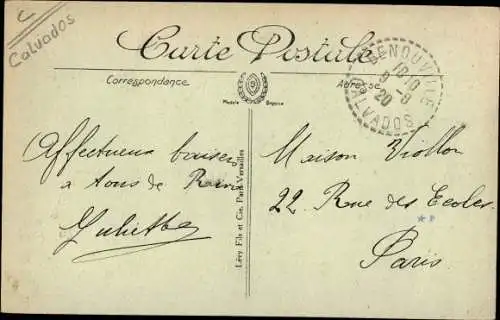 Calvados
Carte Postale
Correspondance
Adresse
BENOUVILLE
18-10
9-8
20
CALVADOS
Modèle Déposé
Affectueux baisers
a tous de
Juliette
Lévy Fils et Cie, Paris-Versailles
Maison Viollon
22 Rue des Ecoles
Paris